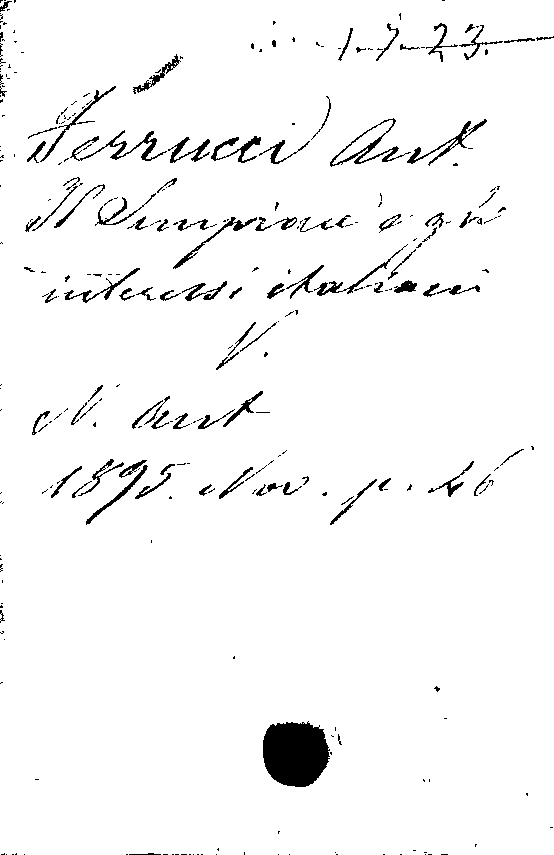 1.7.23.
Ferrucci Ant.
Il Sempione e gli
interessi italiani
V.
N. Ant
1895. Nov. p. 26